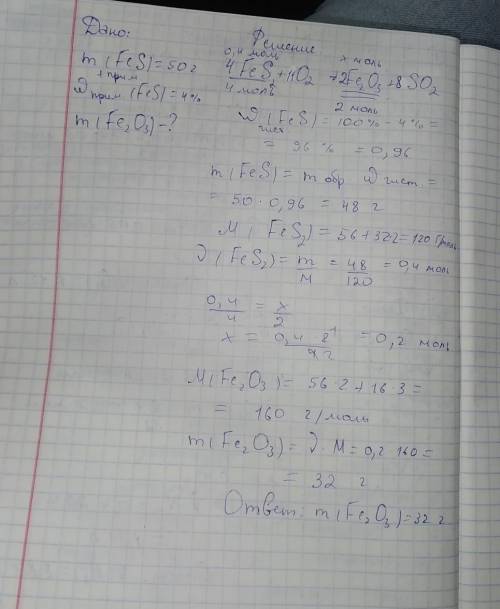 Дано:
m(FeS)=50г
+прим
ω прим (FeS)=4%
m(Fe2O3)-?
Решение
0,4 моль х моль
4FeS2+11O2 → 2Fe2O3+8SO2
4 моль 2 моль
ω чист (FeS)=100%-4%=
= 96% = 0,96
m(FeS)= m обр ω чист. =
= 50·0,96 = 48 г
M(FeS2)=56+32·2=120 г/моль
ν(FeS2)= m/M = 48/120 = 0,4 моль
0,4/4 = x/2
x = 0,4·2/4 = 0,2 моль
M(Fe2O3)= 56·2+16·3=
= 160 г/моль
m(Fe2O3)= ν·M=0,2·160=
= 32 г
Ответ: m(Fe2O3)=32 г